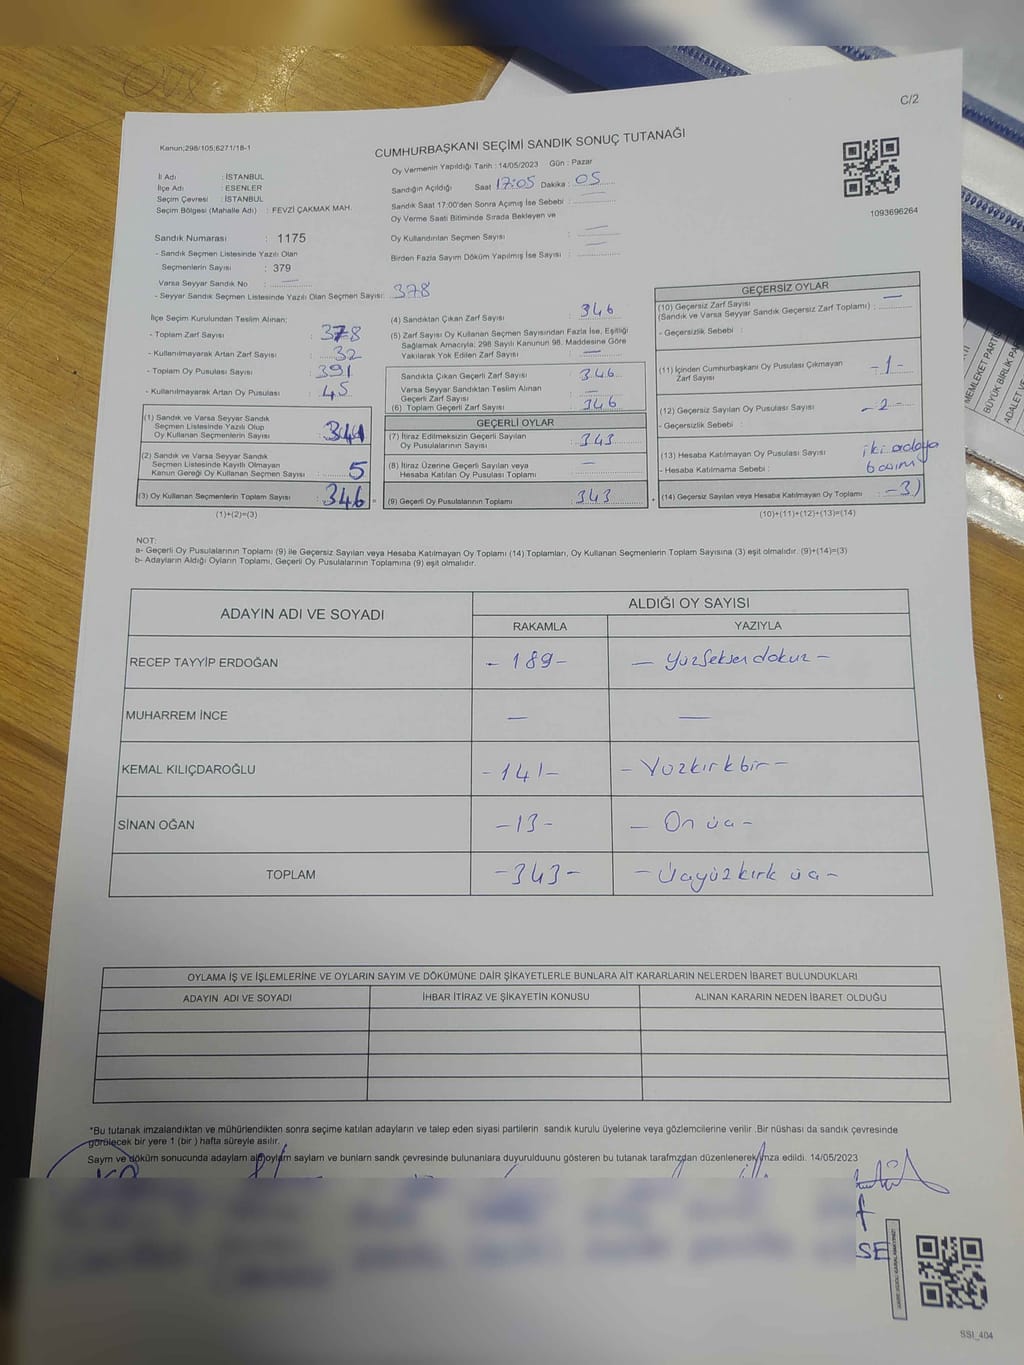 C/2
Kanun;298/105;6271/18-1
CUMHURBAŞKANI SEÇİMİ SANDIK SONUÇ TUTANAĞI
1093696264
İl Adı : İSTANBUL
İlçe Adı : ESENLER
Seçim Çevresi : İSTANBUL
Seçim Bölgesi (Mahalle Adı) : FEVZİ ÇAKMAK MAH.
Oy Vermenin Yapıldığı Tarih : 14/05/2023 Gün : Pazar
Sandığın Açıldığı Saat 17:05 Dakika : 05
Sandık Saat 17:00'den Sonra Açımış İse Sebebi : —
Oy Verme Saati Bitiminde Sırada Bekleyen ve
Oy Kullandırılan Seçmen Sayısı : —
Birden Fazla Sayım Döküm Yapılmış İse Sayısı : —
Sandık Numarası : 1175
- Sandık Seçmen Listesinde Yazılı Olan
Seçmenlerin Sayısı : 379
Varsa Seyyar Sandık No : —
- Seyyar Sandık Seçmen Listesinde Yazılı Olan Seçmen Sayısı: 378
İlçe Seçim Kurulundan Teslim Alınan;
- Toplam Zarf Sayısı : 378
- Kullanılmayarak Artan Zarf Sayısı : 32
- Toplam Oy Pusulası Sayısı : 391
- Kullanılmayarak Artan Oy Pusulası : 45
(1) Sandık ve Varsa Seyyar Sandık
Seçmen Listesinde Yazılı Olup
Oy Kullanan Seçmenlerin Sayısı : 341
(2) Sandık ve Varsa Seyyar Sandık
Seçmen Listesinde Kayıtlı Olmayan
Kanun Gereği Oy Kullanan Seçmen Sayısı : 5
(3) Oy Kullanan Seçmenlerin Toplam Sayısı : 346 =
(1)+(2)=(3)
(4) Sandıktan Çıkan Zarf Sayısı : 346
(5) Zarf Sayısı Oy Kullanan Seçmen Sayısından Fazla İse, Eşitliği
Sağlamak Amacıyla; 298 Sayılı Kanunun 98. Maddesine Göre
Yakılarak Yok Edilen Zarf Sayısı : —
Sandıkta Çıkan Geçerli Zarf Sayısı : 346
Varsa Seyyar Sandıktan Teslim Alınan
Geçerli Zarf Sayısı : —
(6) Toplam Geçerli Zarf Sayısı : 346
GEÇERLİ OYLAR
(7) İtiraz Edilmeksizin Geçerli Sayılan
Oy Pusulalarının Sayısı : 343
(8) İtiraz Üzerine Geçerli Sayılan veya
Hesaba Katılan Oy Pusulası Toplamı : —
(9) Geçerli Oy Pusulalarının Toplamı : 343 +
GEÇERSİZ OYLAR
(10) Geçersiz Zarf Sayısı
(Sandık ve Varsa Seyyar Sandık Geçersiz Zarf Toplamı) : —
- Geçersizlik Sebebi :
(11) İçinden Cumhurbaşkanı Oy Pusulası Çıkmayan
Zarf Sayısı : -1-
(12) Geçersiz Sayılan Oy Pusulası Sayısı : -2-
- Geçersizlik Sebebi :
(13) Hesaba Katılmayan Oy Pusulası Sayısı : iki adaya
- Hesaba Katılmama Sebebi : basım
(14) Geçersiz Sayılan veya Hesaba Katılmayan Oy Toplamı : -3)
(10)+(11)+(12)+(13)=(14)
NOT:
a- Geçerli Oy Pusulalarının Toplamı (9) ile Geçersiz Sayılan veya Hesaba Katılmayan Oy Toplamı (14) Toplamları, Oy Kullanan Seçmenlerin Toplam Sayısına (3) eşit olmalıdır. (9)+(14)=(3)
b- Adayların Aldığı Oyların Toplamı, Geçerli Oy Pusulalarının Toplamına (9) eşit olmalıdır.
ADAYIN ADI VE SOYADI ALDIĞI OY SAYISI
RAKAMLA YAZIYLA
RECEP TAYYİP ERDOĞAN -189- — Yüzseksendokuz -
MUHARREM İNCE — —
KEMAL KILIÇDAROĞLU -141- - Yüzkırkbir -
SİNAN OĞAN -13- - On üç -
TOPLAM -343- - Üçyüzkırk üç -
OYLAMA İŞ VE İŞLEMLERİNE VE OYLARIN SAYIM VE DÖKÜMÜNE DAİR ŞİKAYETLERLE BUNLARA AİT KARARLARIN NELERDEN İBARET BULUNDUKLARI
ADAYIN ADI VE SOYADI İHBAR İTİRAZ VE ŞİKAYETİN KONUSU ALINAN KARARIN NEDEN İBARET OLDUĞU
*Bu tutanak imzalandıktan ve mühürlendikten sonra seçime katılan adayların ve talep eden siyasi partilerin sandık kurulu üyelerine veya gözlemcilerine verilir .Bir nüshası da sandık çevresinde
görülecek bir yere 1 (bir ) hafta süreyle asılır.
Sayım ve döküm sonucunda adayların aldı oyların sayların ve bunların sandk çevresinde bulunanlara duyurulduunu gösteren bu tutanak tarafmzdan düzenlenerek imza edildi. 14/05/2023
SE
SSI_404
MEMLEKET PART
BÜYÜK BİRLİK PA
ADALET VE